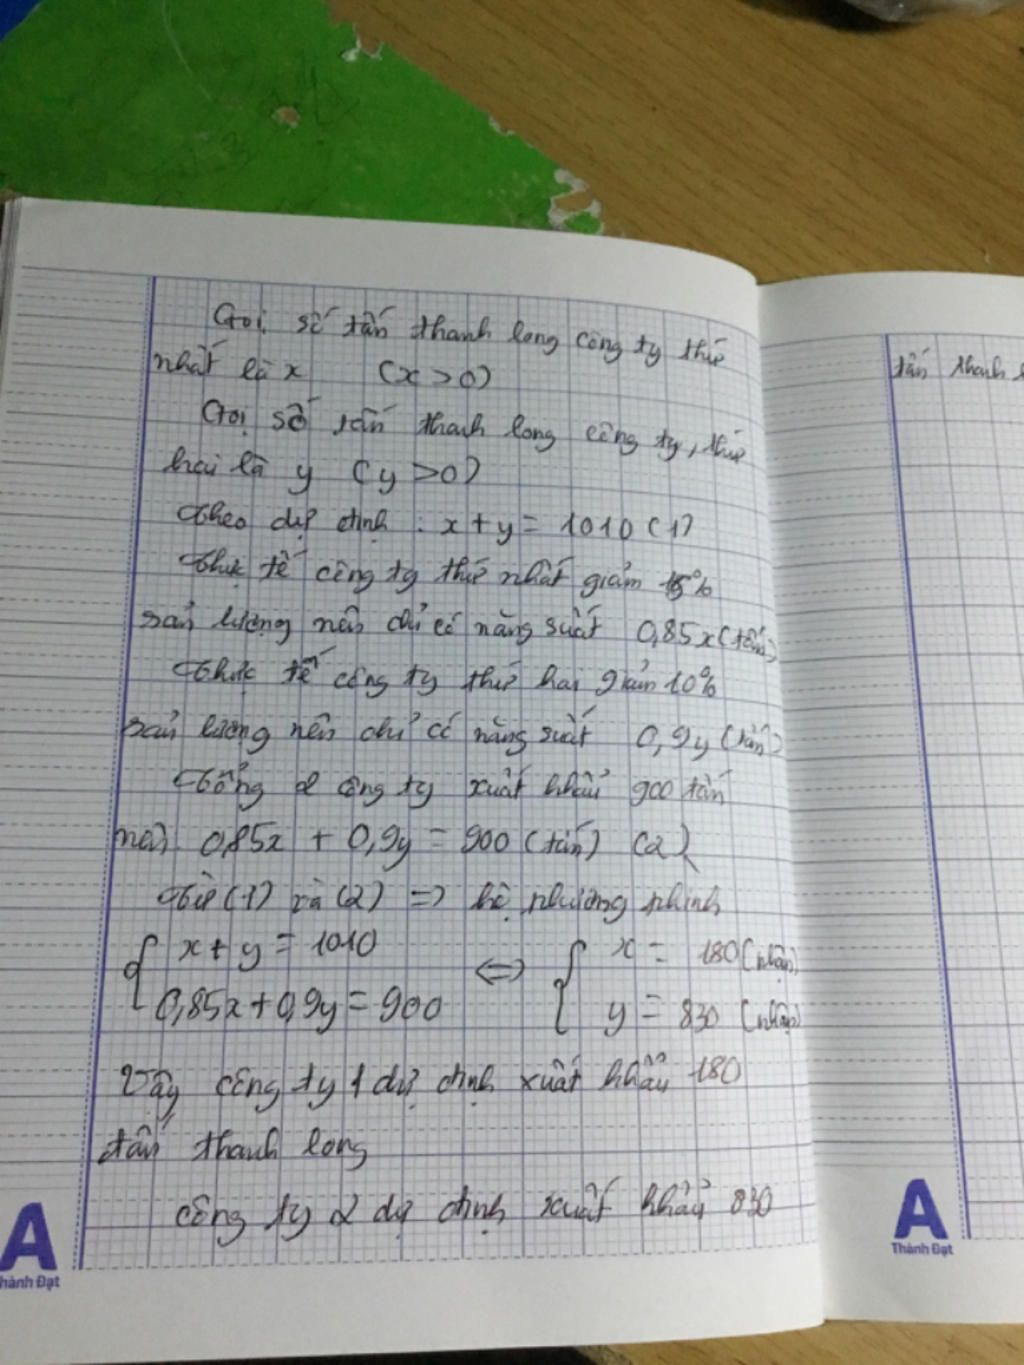 Gọi số tấn thanh long công ty thứ
nhất là x (x > 0)
tấn thanh l
Gọi số tấn thanh long công ty, thứ
hai là y (y > 0)
Theo dự định : x + y = 1010 (1)
Thực tế công ty thứ nhất giảm 15%
sản lượng nên chỉ có năng suất 0,85x (tấn)
Thực tế công ty thứ hai giảm 10%
sản lượng nên chỉ có năng suất 0,9y (tấn)
Tổng 2 công ty xuất khẩu 900 tấn
nên 0,85x + 0,9y = 900 (tấn) (2)
Từ (1) và (2) => hệ phương trình
{ x + y = 1010 <=> { x = 180 (nhận)
0,85x + 0,9y = 900 y = 830 (nhận)
Vậy công ty 1 dự định xuất khẩu 180
tấn thanh long
công ty 2 dự định xuất khẩu 830
A
hành Đạt
A
Thành Đạt